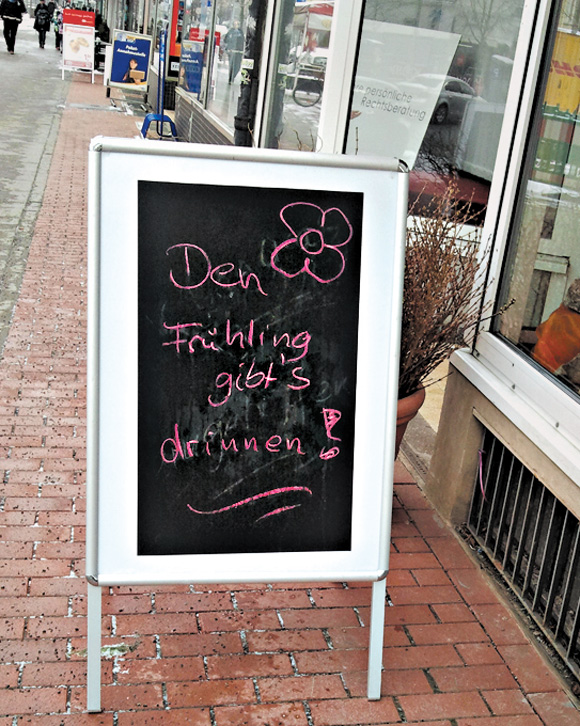 persönliche
Rechtsberatung
Den
Frühling
gibt's
drinnen!